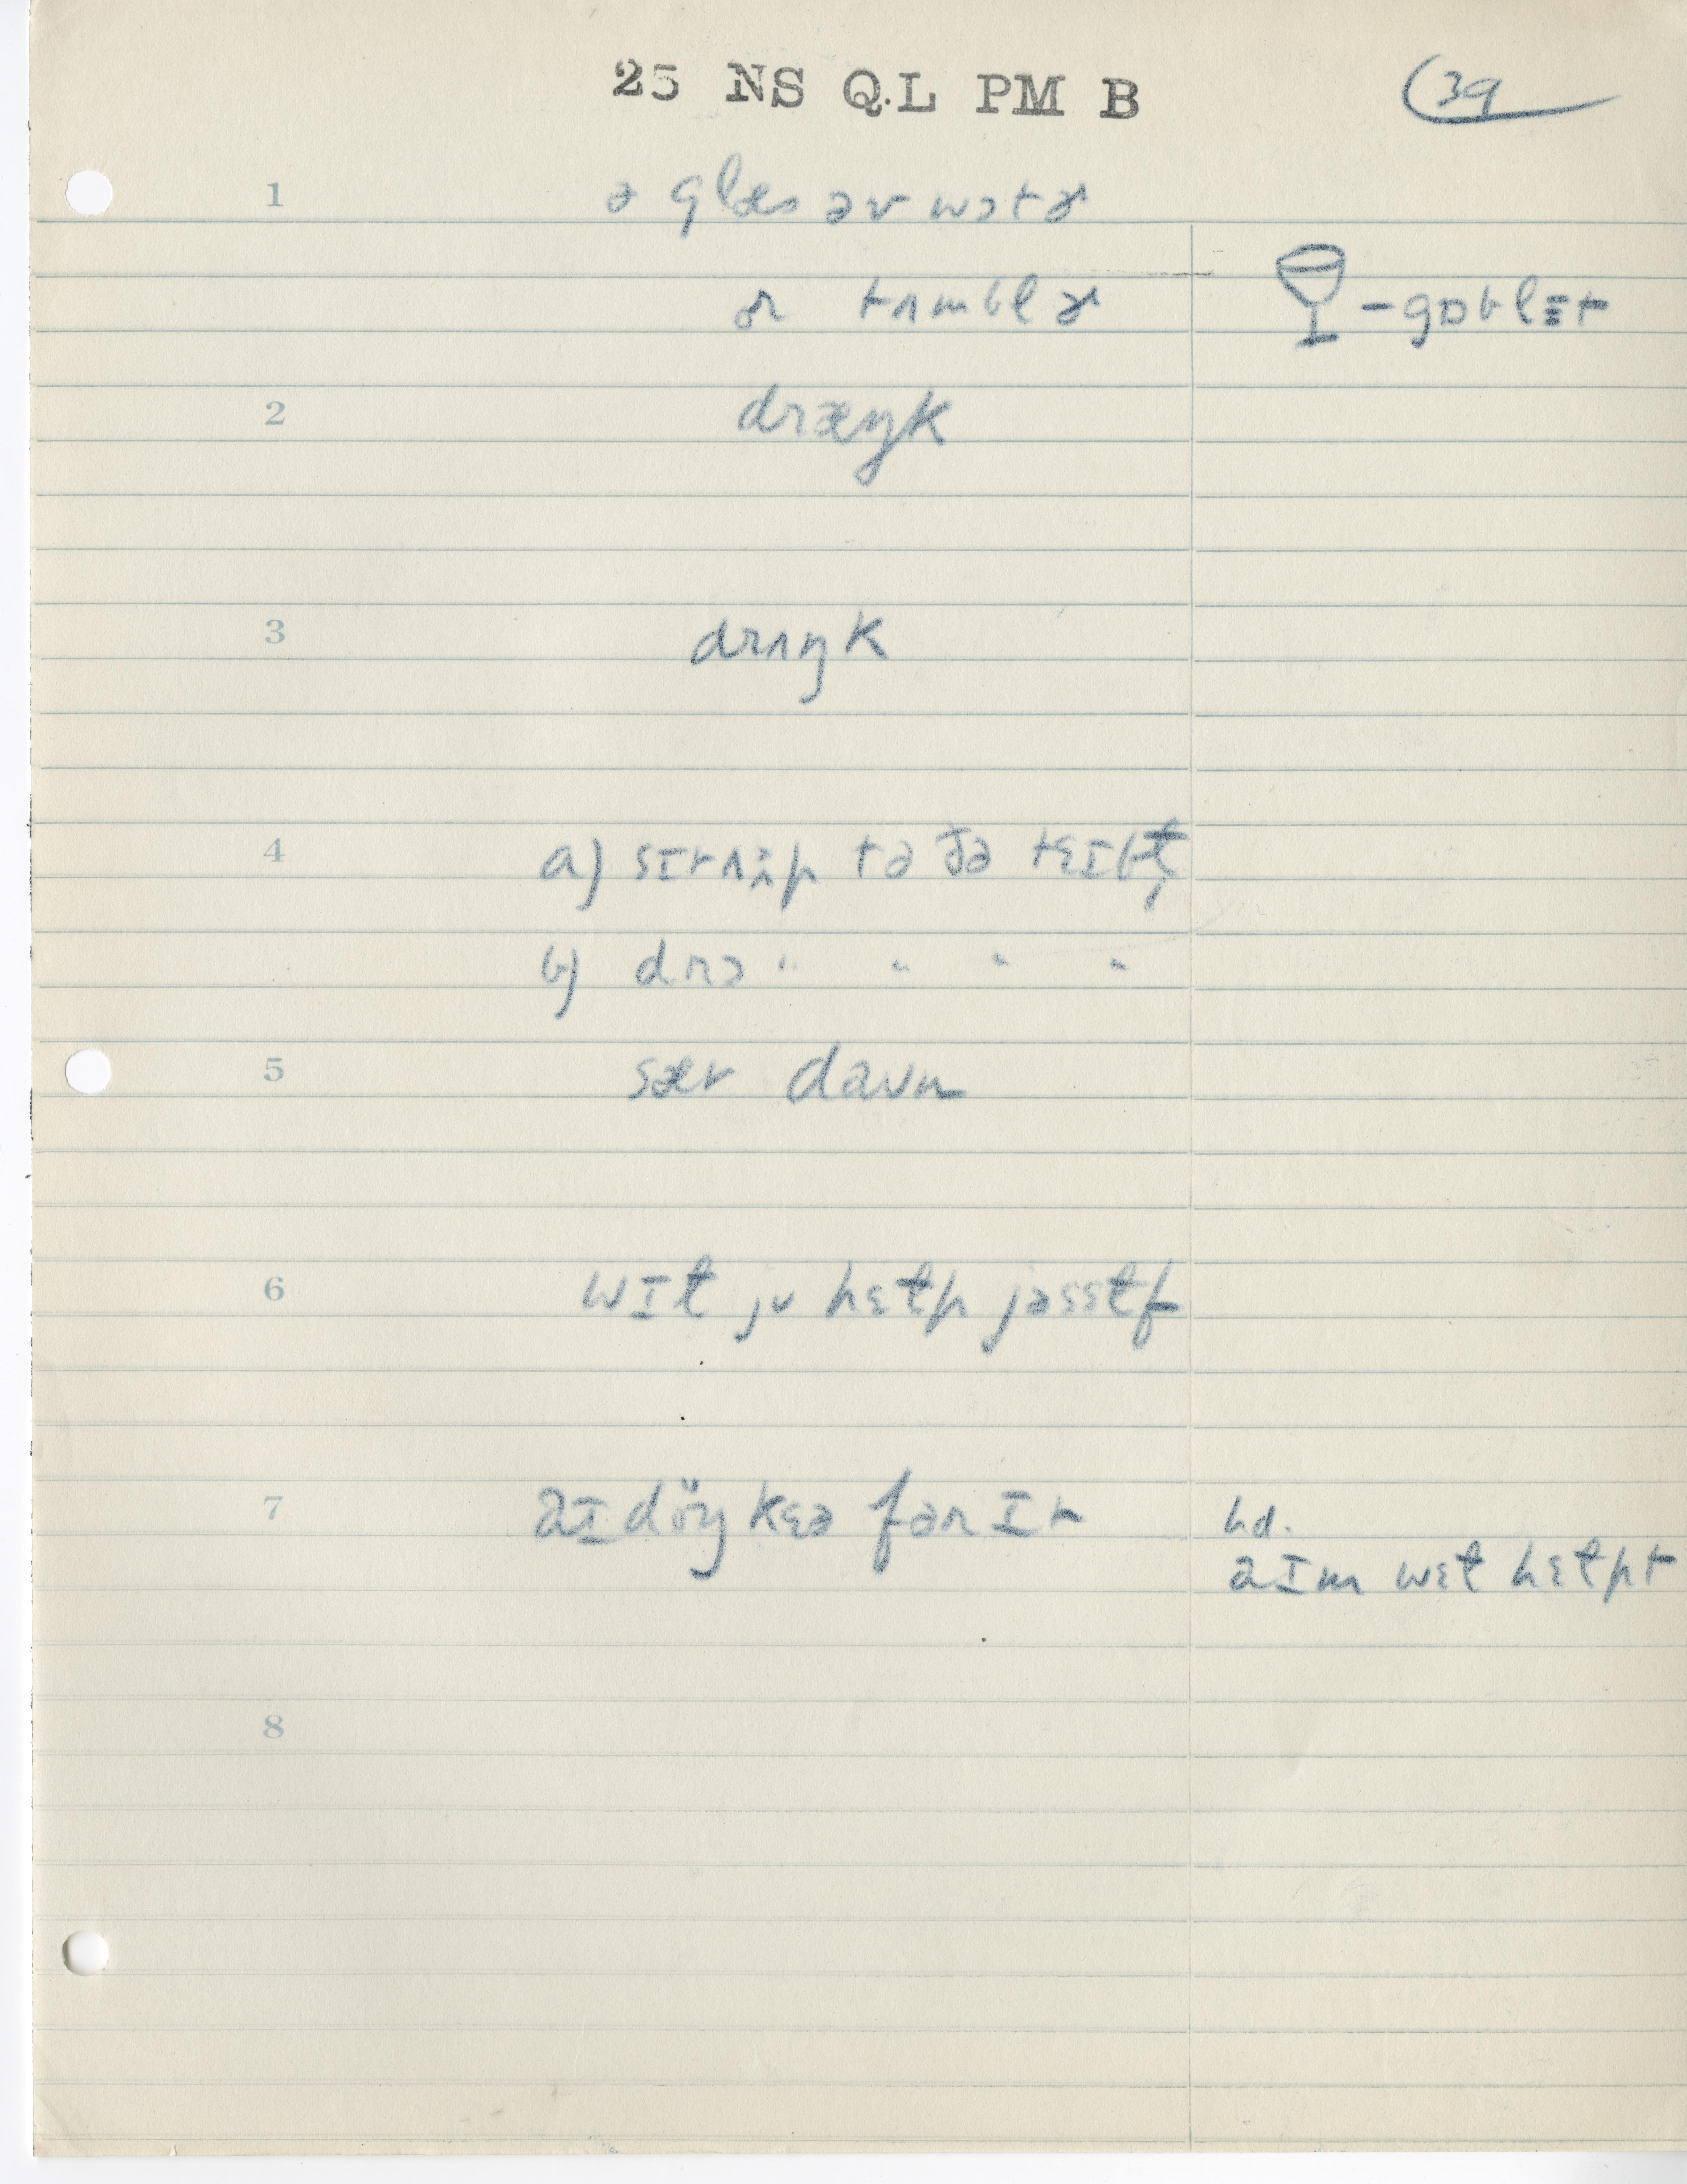 25 NS Q.L PM B
39
1 ə glæs əv wɔtɚ
ɚ tʌmblɚ
– gɒblɪt
2 dræŋk
3 drʌŋk
4 a) sɪt ʌp tə ðə teɪbɫ̩
b) drɔ " " " "
5 sæt daʊn
6 wɪɫ jʊ hɛɫp jəsɛɫf
7 aɪ döŋ kɛə fər ɪt
hd.
aɪm wɛɫ hɛɫpt
8